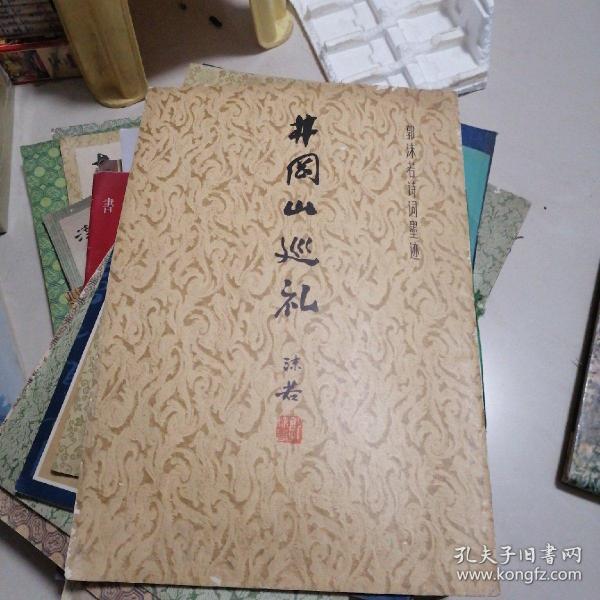 郭沫若诗词墨迹
井冈山巡礼
沫若
書
孔夫子旧書网
www.kongfz.com